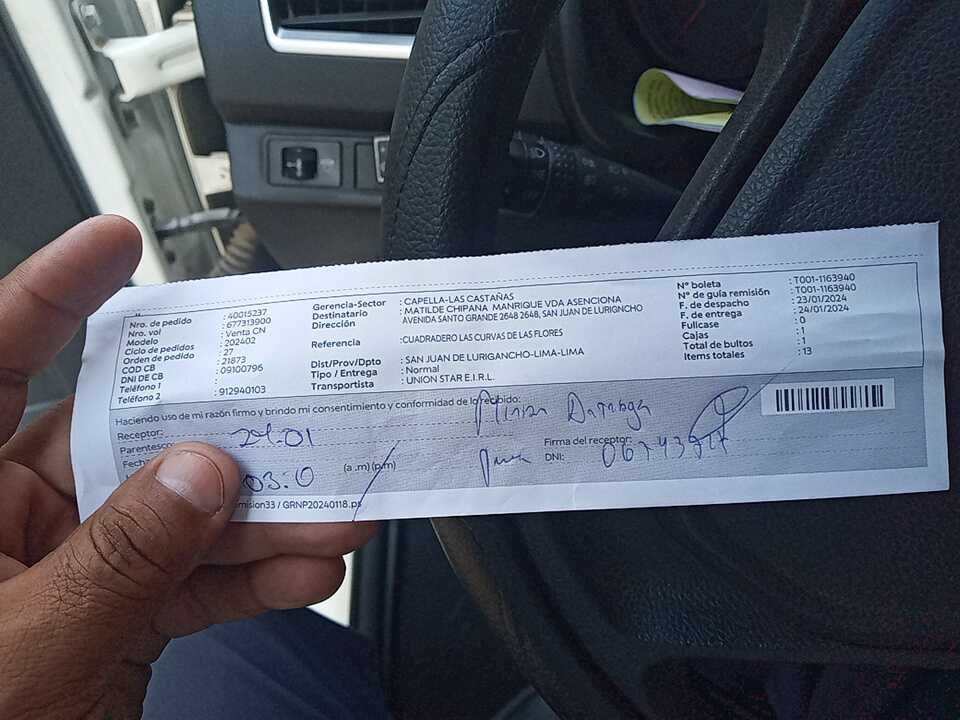 Nro. de pedido : 40015237
Nro. vol : 677313900
Modelo : Venta CN
Ciclo de pedidos : 202402
Orden de pedido : 27
COD CB : 21873
DNI DE CB : 09100796
Teléfono 1 :
Teléfono 2 : 912940103
Gerencia-Sector : CAPELLA-LAS CASTAÑAS
Destinatario : MATILDE CHIPANA MANRIQUE VDA ASENCIONA
Dirección AVENIDA SANTO GRANDE 2648 2648, SAN JUAN DE LURIGNCHO
Referencia :CUADRADERO LAS CURVAS DE LAS FLORES
Dist/Prov/Dpto : SAN JUAN DE LURIGANCHO-LIMA-LIMA
Tipo / Entrega : Normal
Transportista : UNION STAR E.I.R.L.
N° boleta : T001-1163940
N° de guía remisión : T001-1163940
F. de despacho : 23/01/2024
F. de entrega : 24/01/2024
Fullcase : 0
Cajas : 1
Total de bultos : 1
Items totales : 13
Haciendo uso de mi razón firmo y brindo mi consentimiento y conformidad de lo recibido:
Receptor:
Parentesco
Fecha 24.01
03:0 (a .m) (p.m)
Firma del receptor:
DNI:
mision33 / GRNP20240118.ps